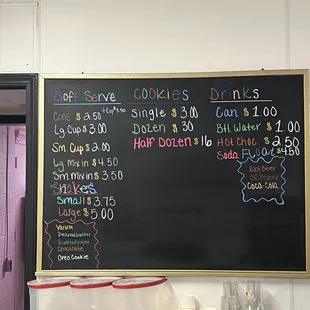 Soft Serve
Cone $2.50
Lg Cup $3.00
Sm Cup $2.00
Lg Mix in $4.50
Sm. Mix in $3.50
Shakes
Small $3.75
Large $5.00
Vanilla
Peanutbutter
Butterfinger
Chocolate
Oreo Cookie
COOKIES
Single $3.00
Dozen $30
Half Dozen $16
Drinks
Can $1.00
Btl Water $1.00
Hot Choc $2.50
Soda Float $4.50
Root Beer
DR. Pepper
Coca-Cola